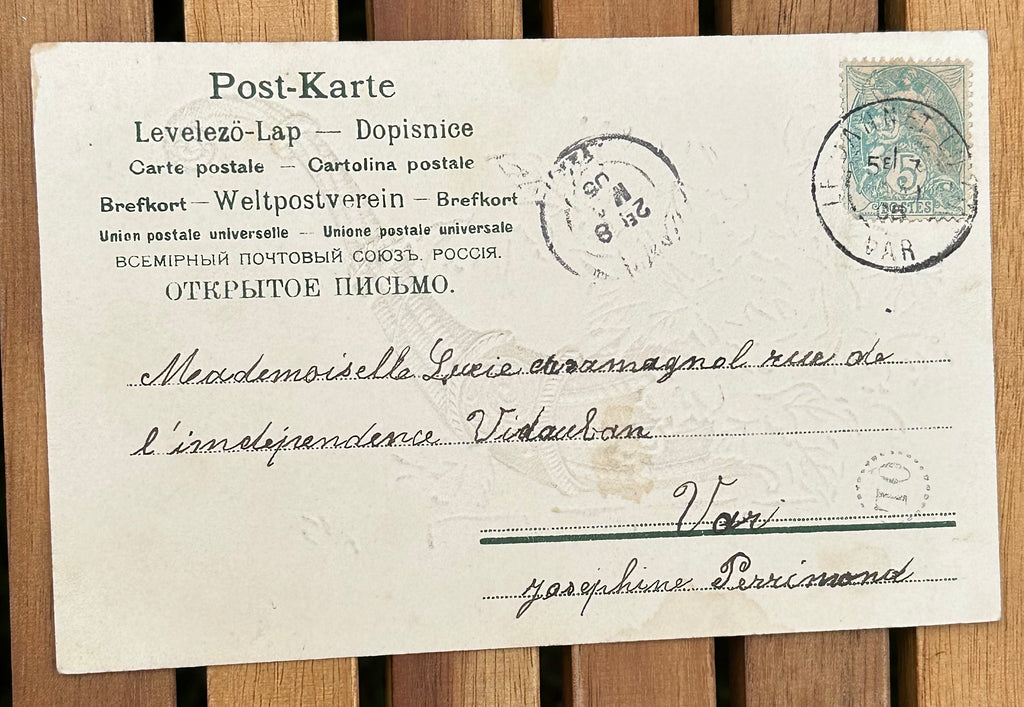 Post-Karte
Levelezö-Lap — Dopisnice
Carte postale — Cartolina postale
Brefkort — Weltpostverein — Brefkort
Union postale universelle — Unione postale universale
ВСЕМIРНЫЙ ПОЧТОВЫЙ СОЮЗЪ. РОССIЯ.
ОТКРЫТОЕ ПИСЬМО.
5
POSTES
LE CANNET
VAR
Mademoiselle Lucie caramagnol rue de
l'imdépendence Vidauban
Var
Joséphine Perrimond